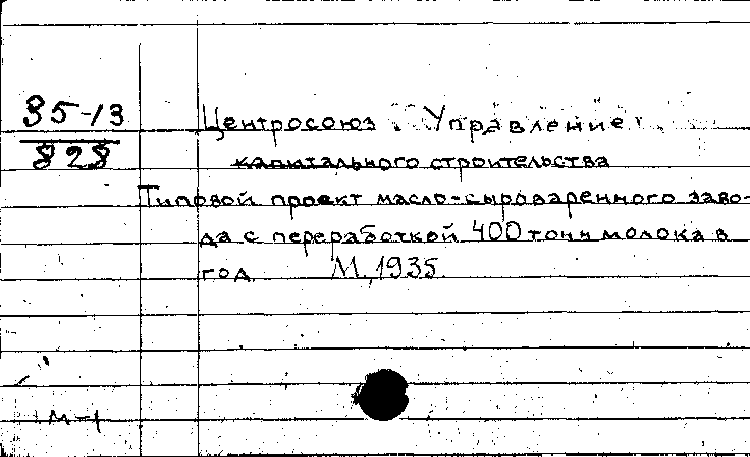 35-13
828
Центросоюз. Управление
капитального строительства
Типовой проект масло-сыроваренного заво-
да с переработкой 400 тонн молока в
год. М., 1935.
М-1